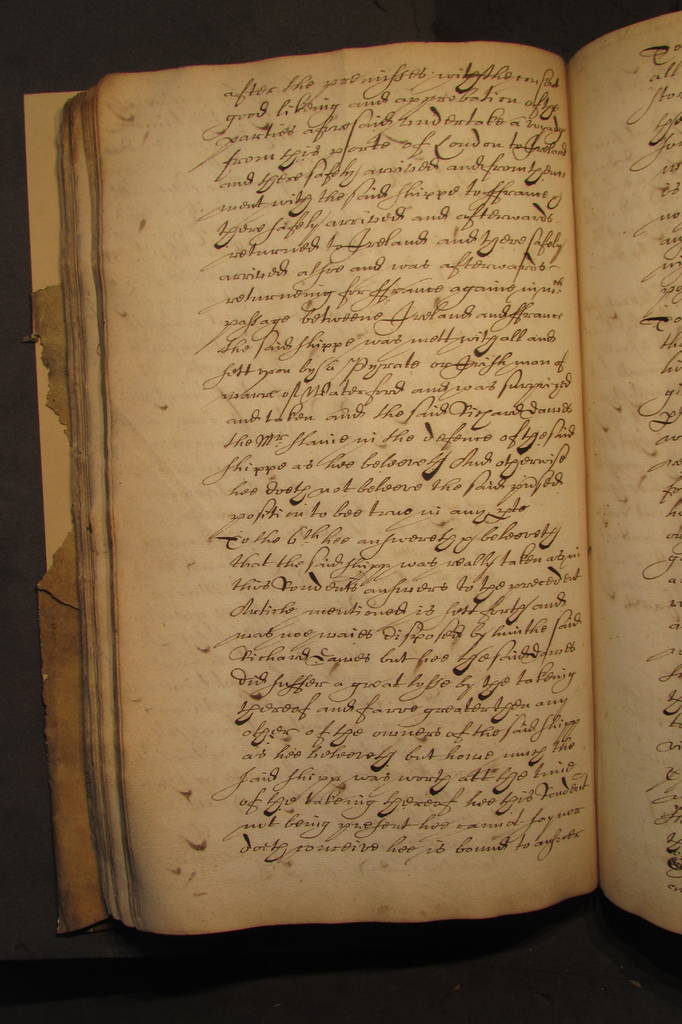 after the premisses with the consent
good likeing and approbation of the
parties aforesaid undertake a voyage
from this porte of London to Ireland
and there safely arrived and from thence
went with the said shippe to ffrance
there safely arrived and afterwards
returned to Ireland and there safely
arrived alsoe and was afterwards
returneing for ffrance againe in wch
passage betweene Ireland and ffrance
the said shippe was mett withall and
sett upon by a Pyrate or Irish man of
warre of Waterford and was surprized
and taken and the said Richard Dawes
the Mr slaine in the defence of the said
shippe as hee beleeveth And otherwise
hee doeth not beleeve the said
position to bee true in any pte
To the 6th hee answereth beleeveth
that the said shipp was really taken as in
this Rondents answers to the precedent
Article mentioned is sett forth and
was noe waies disposed by him the said
Richard Dawes but hee the said Dawes
did suffer a great losse by the takeing
thereof and farre greater then any
other of the owners of the said shipp
as hee beleeveth but howe much the
said shipp was worth att the time
of the takeing thereof hee this Rondent
not being present hee cannot say nor
doeth conceive hee is bound to answer